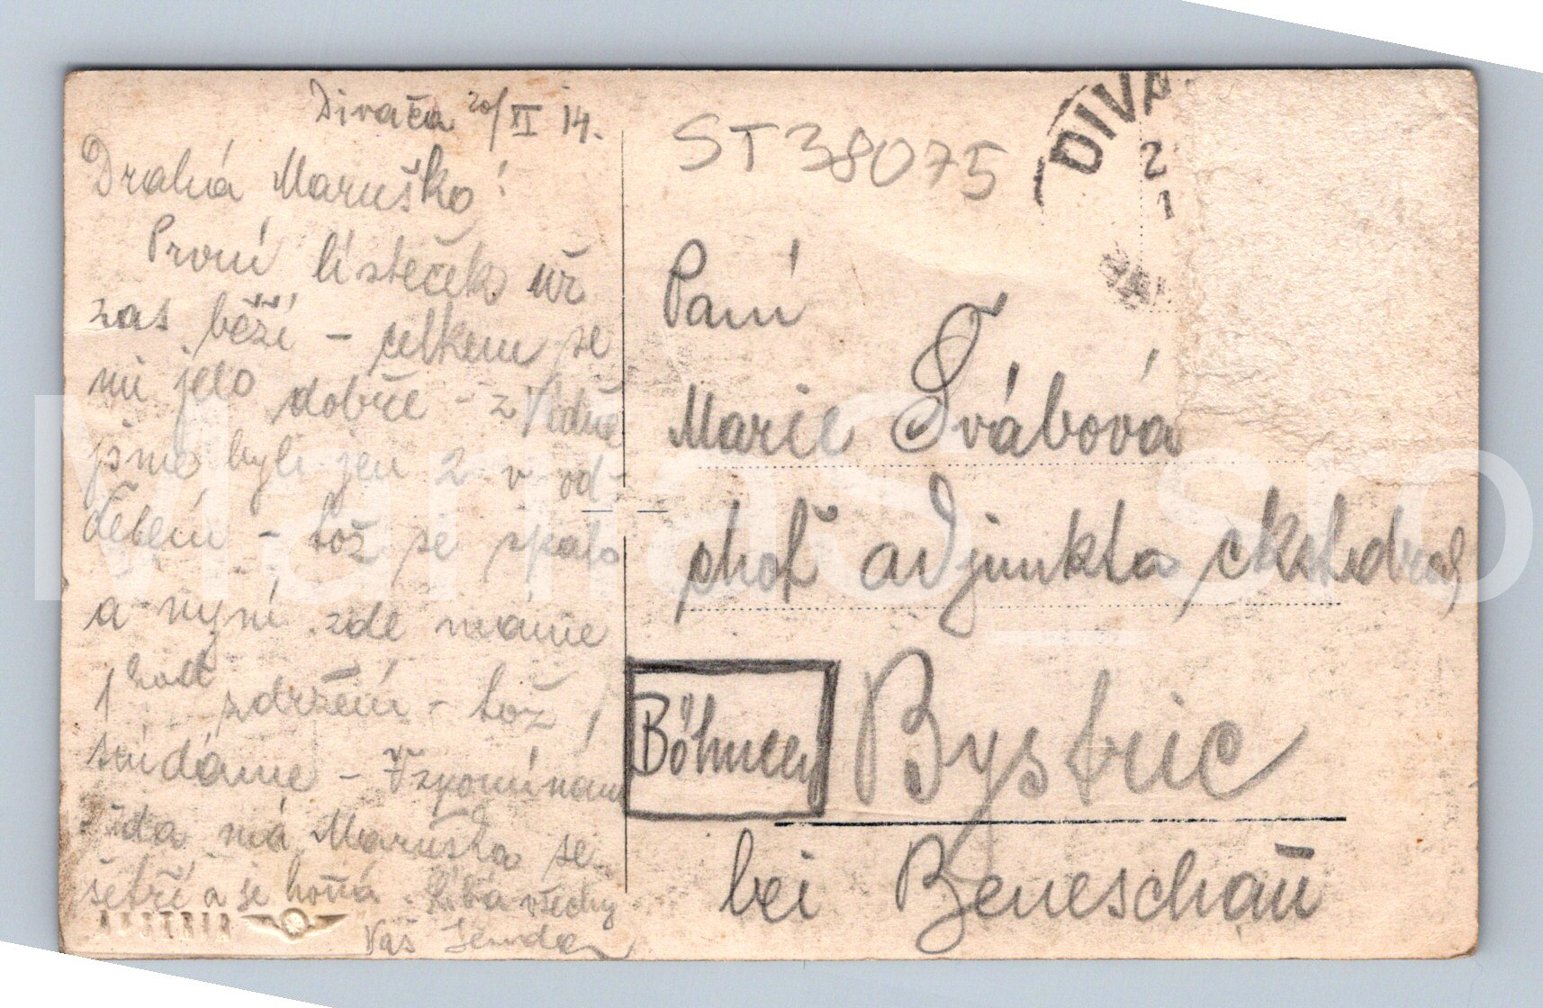 Divača 20/VI 14.
Drahá Maruško!
První lísteček už
zas běží – celkem se
mi jelo dobře – z Vídně
jsme byli jen 2 v od-
dělení – tož se spalo
a nyní zde máme
1 hod zdržení – tož
snídáme – Vzpomínám
má Maruška se
šetří a se hojí. Líbá všechny
Váš
AUSTRIA
ST38075
DIVA
2
1
Paní
Marie Švábová
choť adjunkta
Böhmen
Bystřic
bei Beneschau
Marias_sro